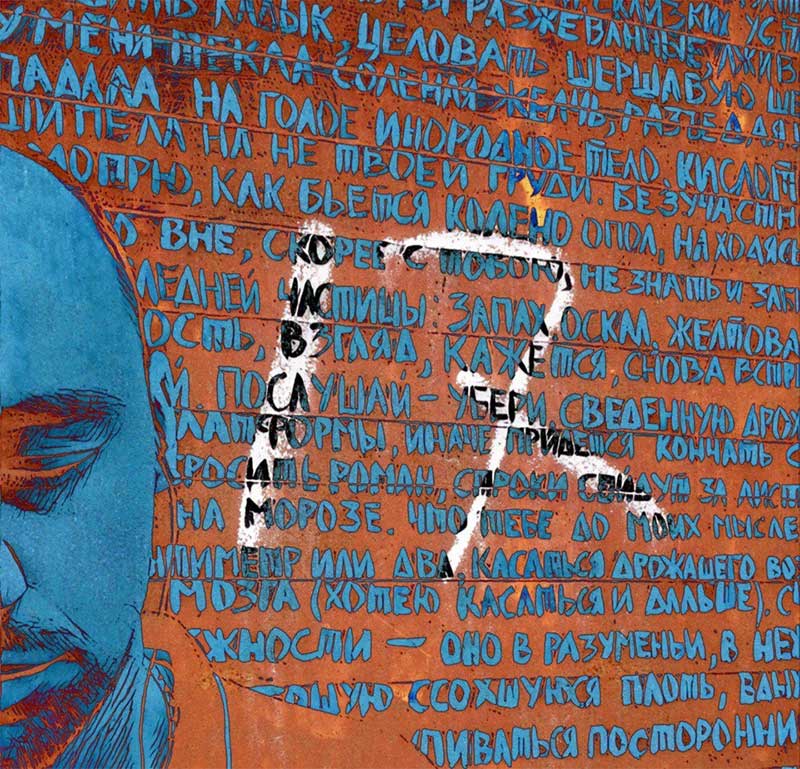 КАДЫК, РАЗЖЕВАННЫЕ
ТЕКЛА СОЛЕНАЯ ЦЕЛОВАТЬ ШЕРШАВУЮ
ПАДАЛА НА ГОЛОЕ ИНОРОДНОЕ ТЕЛО КИСЛОТ
ШИПЕЛА НА НЕ ТВОЕЙ ГРУДИ. БЕЗУЧАСТН
КАК БЬЕТСЯ КОЛЕНО О ПОЛ, НАХОДЯСЬ
ВНЕ, СКОРЕЕ С ТОБОЮ, НЕ ЗНАТЬ И
ЛЕДНЕЙ ЧАСТИЦЫ: ЗАПАХ, ОСКАЛ. ЖЕЛТОВА
ОСТЬ, ВЗГЛЯД, КАЖЕТСЯ, СНОВА ВСТР
Й. ПОСЛУШАЙ – УБЕРИ СВЕДЕННУЮ ДРОЖ
ЛАТФОРМЫ, ИНАЧЕ ПРИДЕТСЯ КОНЧАТЬ С
РОСИТЬ РОМАН, СТРОКИ СОЙДУТ ЗА ЛИСТ
НА МОРОЗЕ. ЧТО ТЕБЕ ДО МОИХ МЫСЛЕ
НТИМЕТР ИЛИ ДВА, КАСАТЬСЯ ДРОЖАЩЕГО ВО
МОЗГА (ХОТЕЮ КАСАТЬСЯ И ДАЛЬШЕ). С
ЖНОСТИ – ОНО В РАЗУМЕНЬИ, В НЕ
ССОХШУЮСЯ ПЛОТЬ, ВДЫХ
ПИВАТЬСЯ ПОСТОРОННИ
17